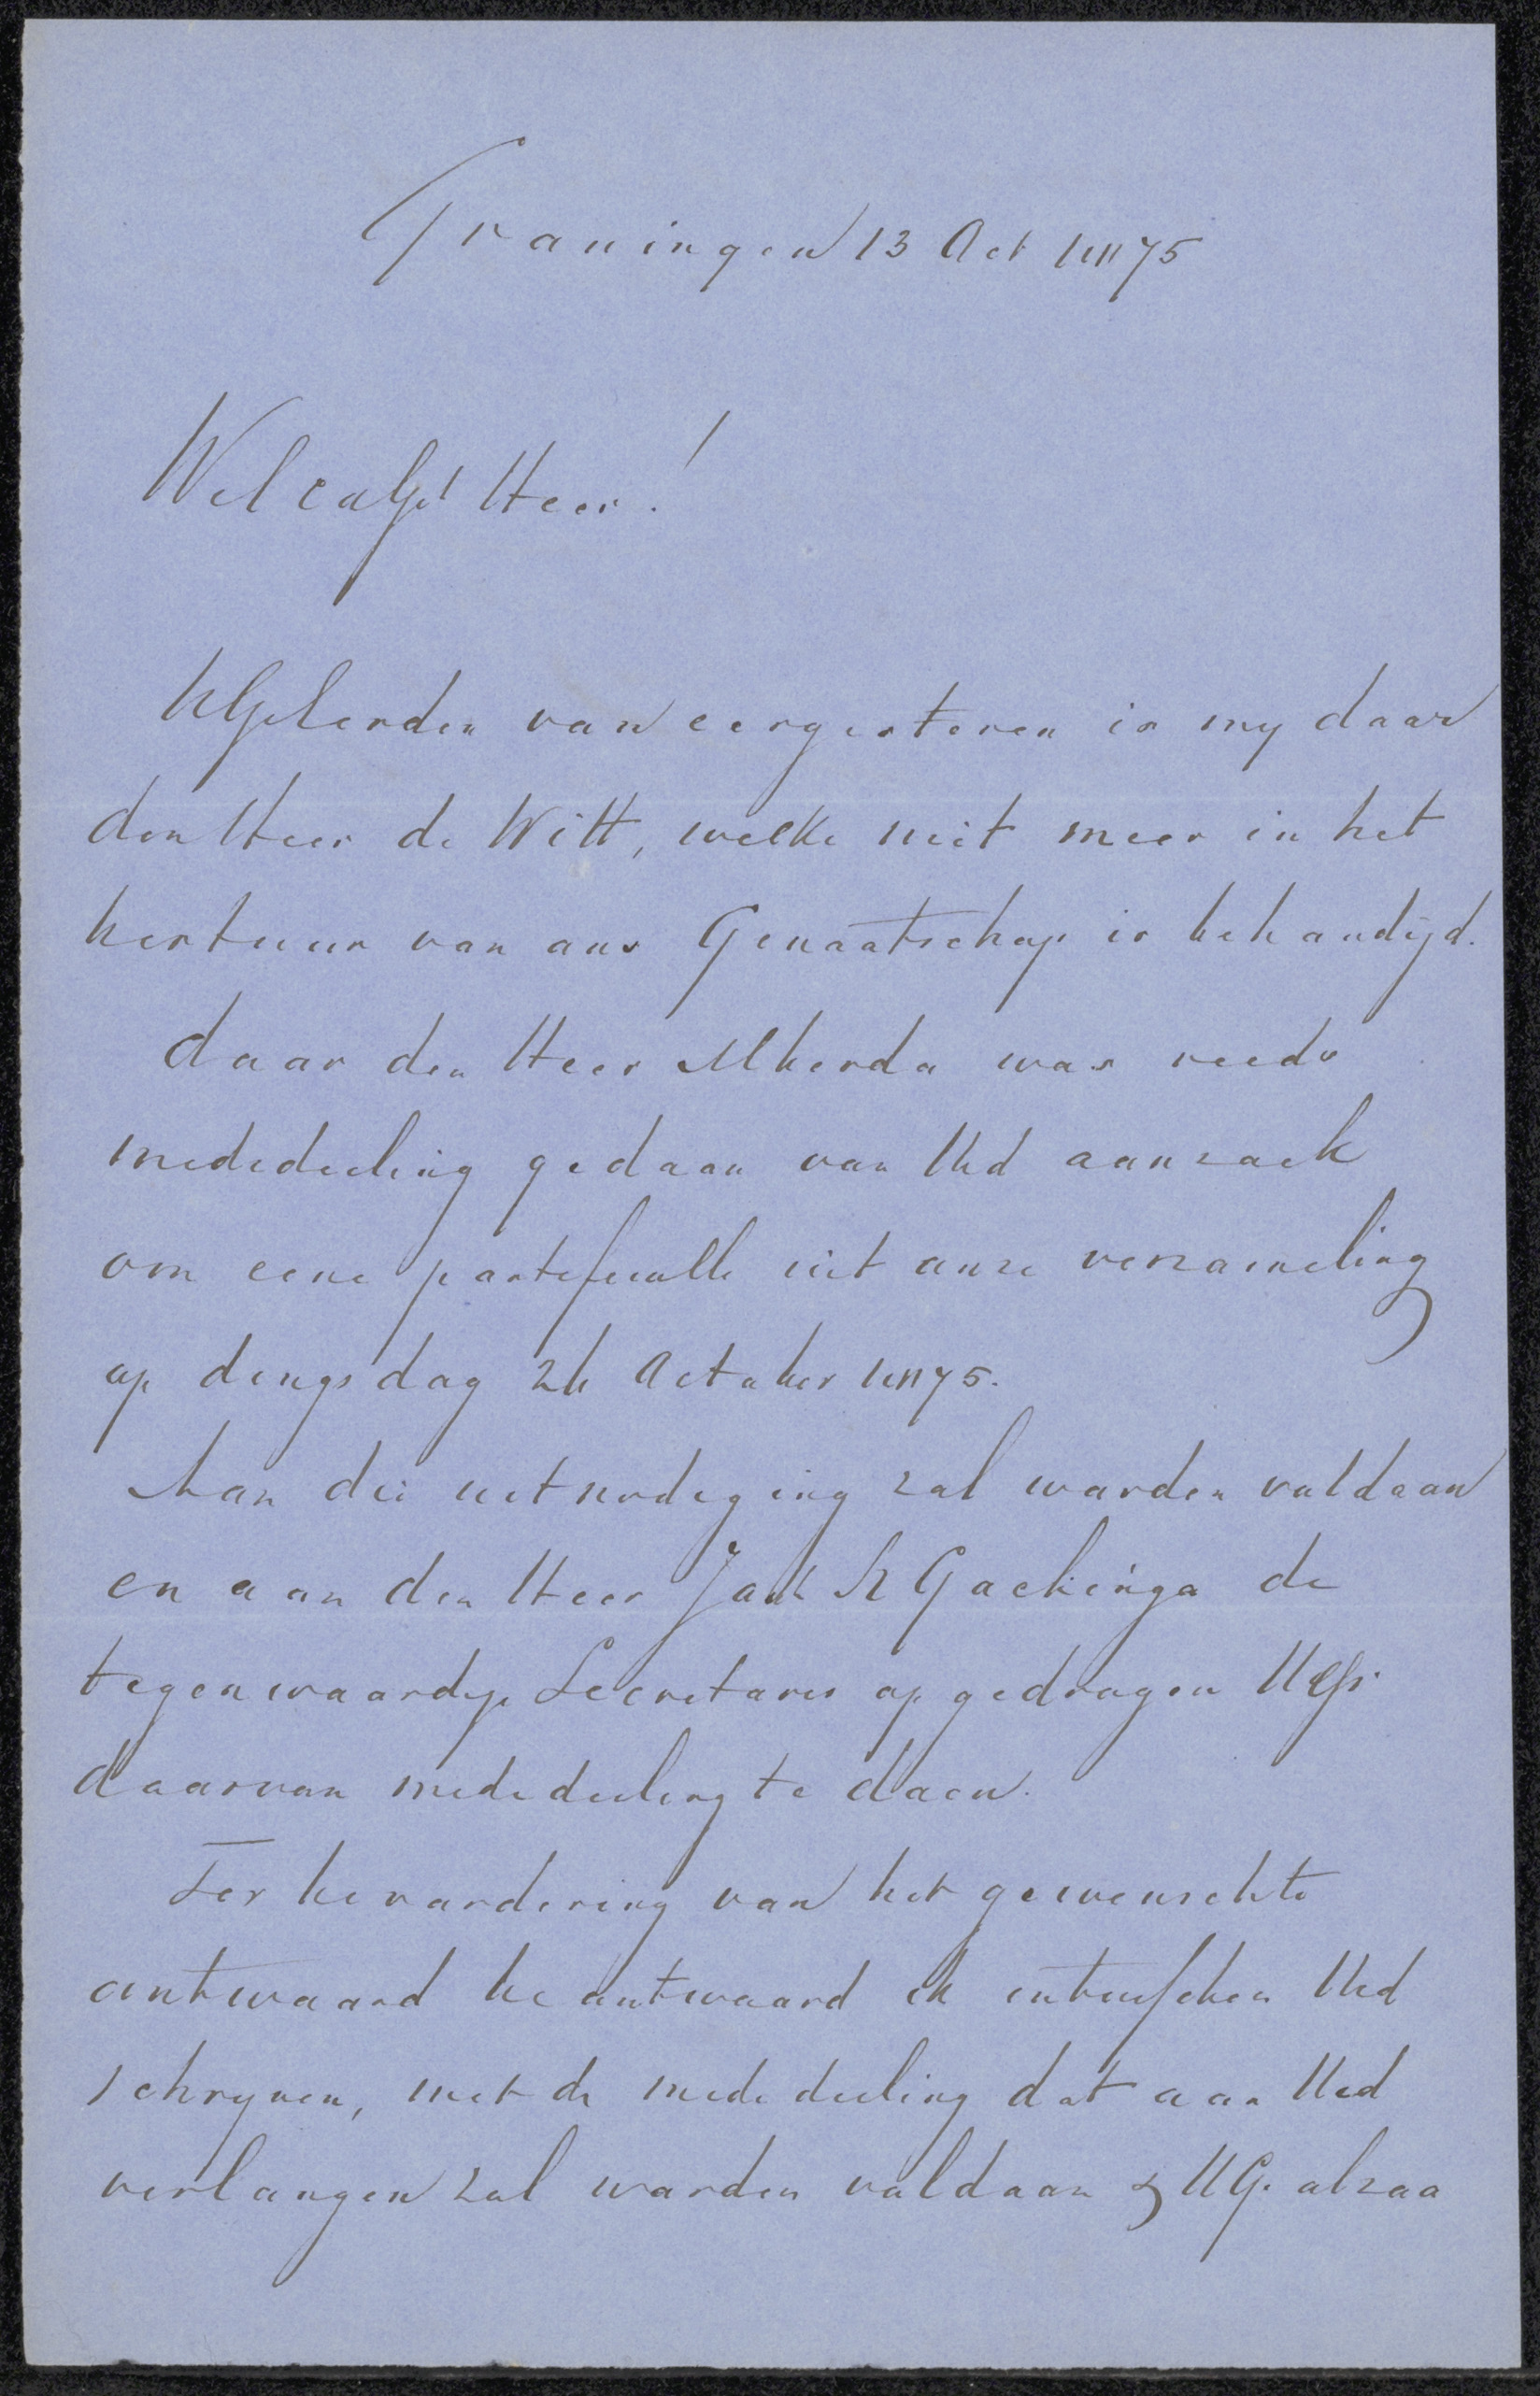 Groningen 13 Oct 1875
Wel ed Gel Heer!
UGeleerden van eergisteren is my door
den Heer de Witt, welke niet meer in het
bestuur van ons Genootschap is behandigd.
door den Heer Alberda was reeds
mededeeling gedaan van UEd aanzoek
om eene portefeuille uit onze verzameling
op dingsdag 26 October 1875.
Aan die uitnodiging zal worden voldaan
en aan den Heer Jonk R Gockinga de
tegenwoordige Secretaris opgedragen
daarvan mededeeling te doen.
Ter bevordering van het gewenschte
antwoord beantwoord ik intusschen UEd
schryven, met de mededeeling dat aan UEd
verlangen zal worden voldaan & UG. alzoo